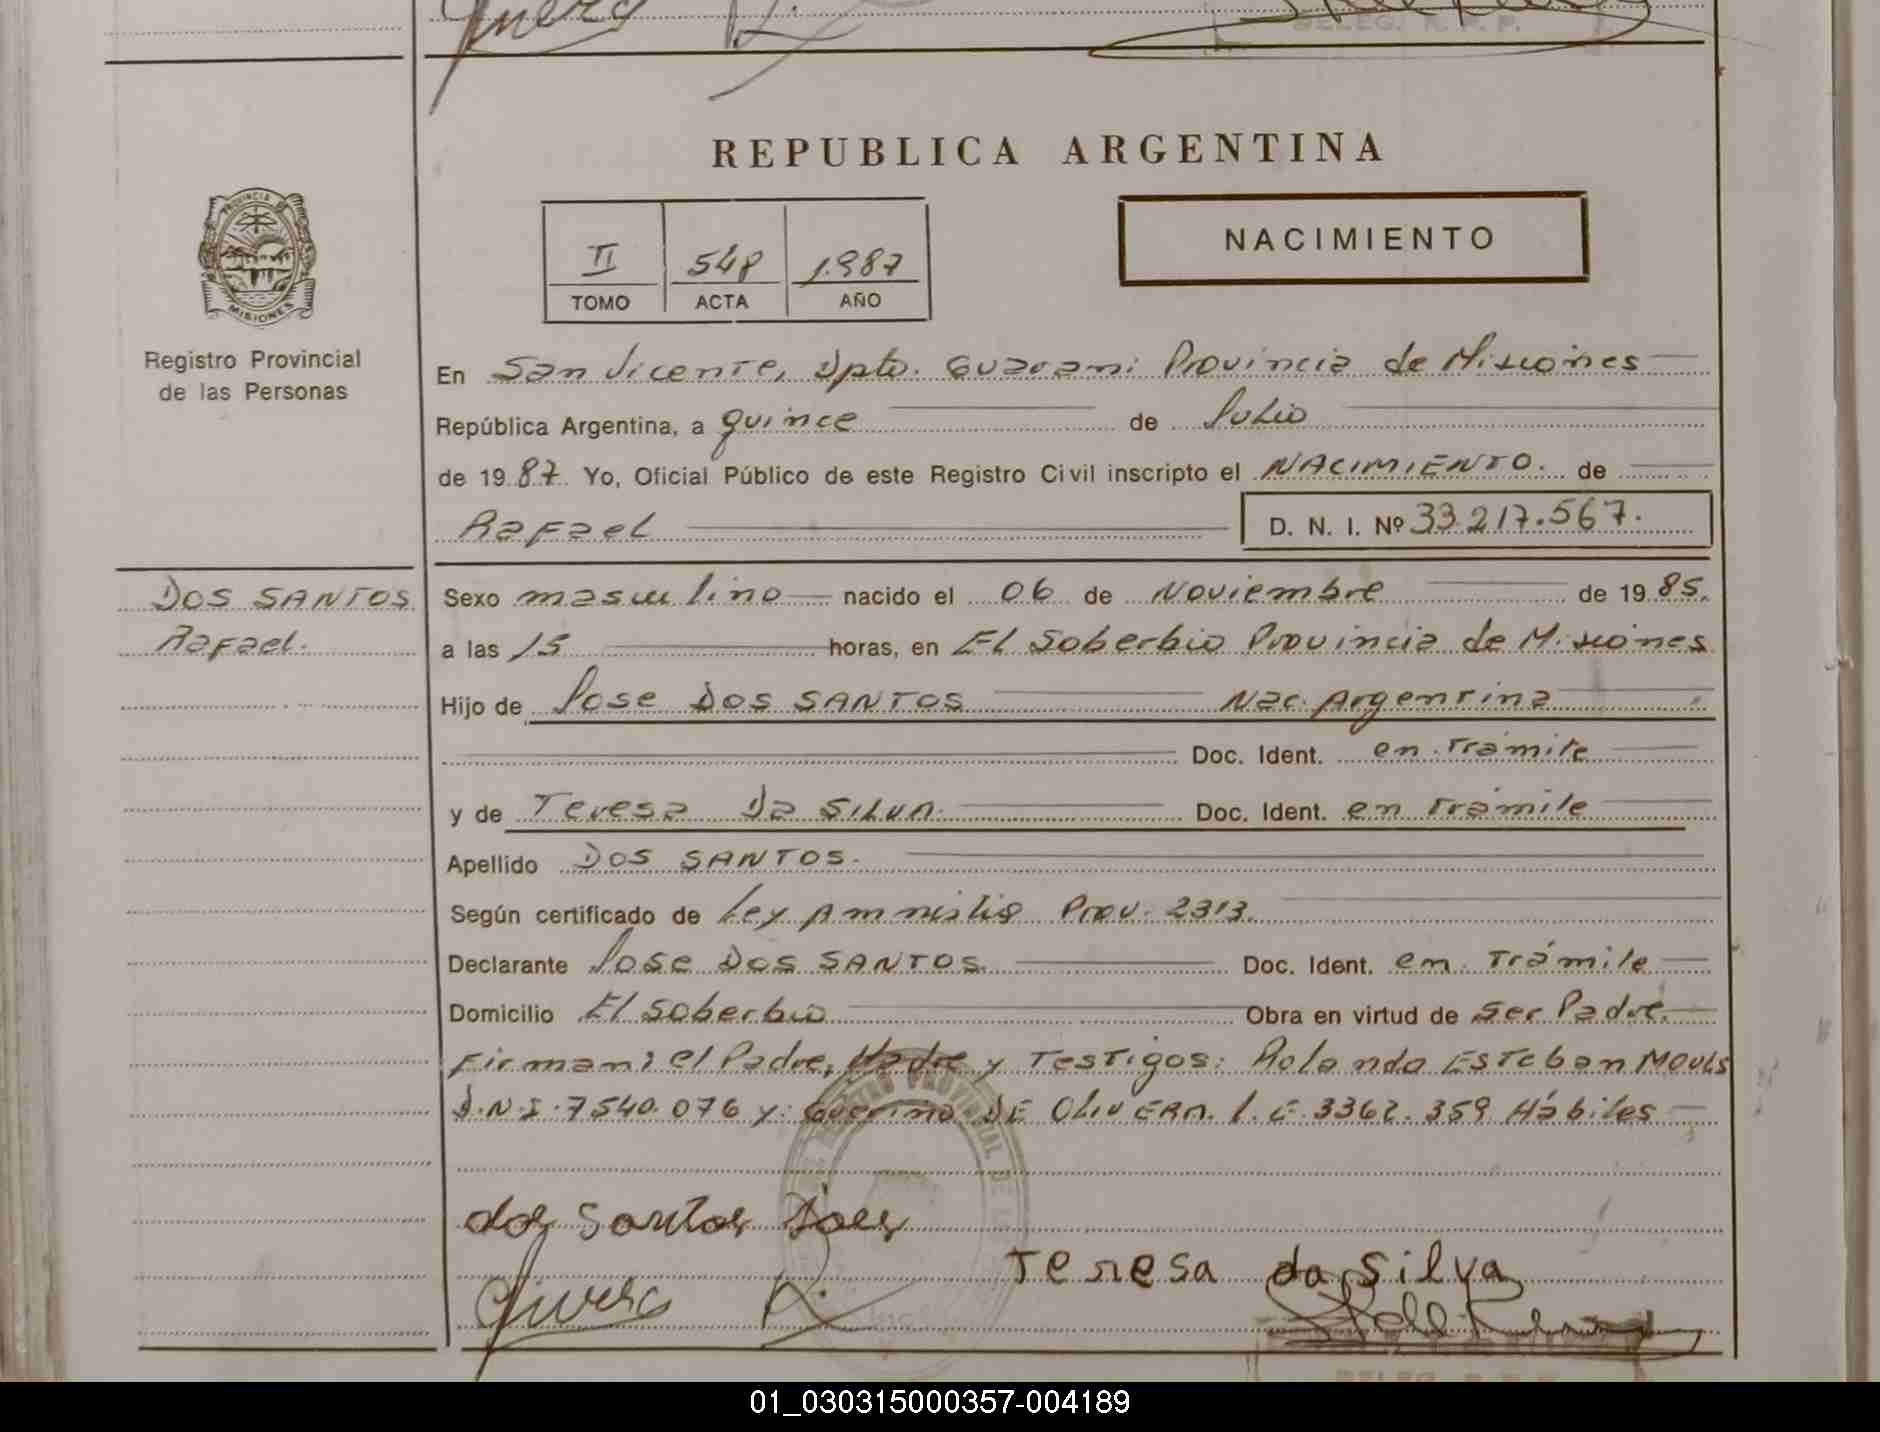 REPUBLICA ARGENTINA
PROVINCIA DE
MISIONES
Registro Provincial
de las Personas
II 548 1.987
TOMO ACTA AÑO
NACIMIENTO
En San Vicente, Dpto. Guarani Provincia de Misiones
República Argentina, a quince de Julio
de 19 87 Yo, Oficial Público de este Registro Civil inscripto el NACIMIENTO. de
Rafael D. N. I. Nº 33.217.567.
DOS SANTOS
Rafael.
Sexo masculino nacido el 06 de Noviembre de 19 85.
a las 15 horas, en El Soberbio Provincia de Misiones
Hijo de Jose DOS SANTOS Nac. Argentina
Doc. Ident. en trámite
y de Teresa Da SILVA. Doc. Ident. en trámite
Apellido DOS SANTOS.
Según certificado de Ley Amnistia Prov. 2313.
Declarante Jose Dos SANTOS. Doc. Ident. en Trámite
Domicilio El Soberbio Obra en virtud de Ser Padre.
Firman: el Padre, Madre y Testigos: Rolando ESTeban
D.N.I. 7540.076 y: Guerino DE OLIVERA. L.E. 3362.359 Hábiles
dos Santos
Teresa da silva
01_030315000357-004189